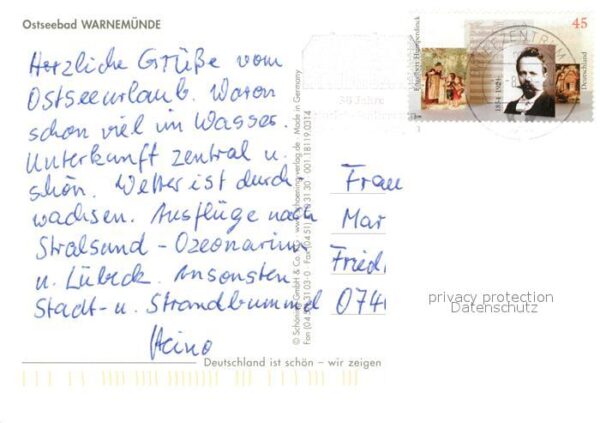 Ostseebad WARNEMÜNDE
Herzliche Grüße vom
Ostseeurlaub. Waren
schon viel im Wasser.
Unterkunft zentral u.
schön. Wetter ist durch-
wachsen. Ausflüge nach
Stralsund - Ozeonarium
u. Lübeck. Ansonsten
Stadt- u. Strandbummel
Heino
Deutschland ist schön – wir zeigen
© Schöning GmbH & Co. KG · www.schoening-verlag.de · Made in Germany
Engelbert Humperdinck
1854-1921
45
Deutschland
BRIEFZENTRUM
30 Jahre
Frau
Mar
Fried
074
privacy protection
Datenschutz